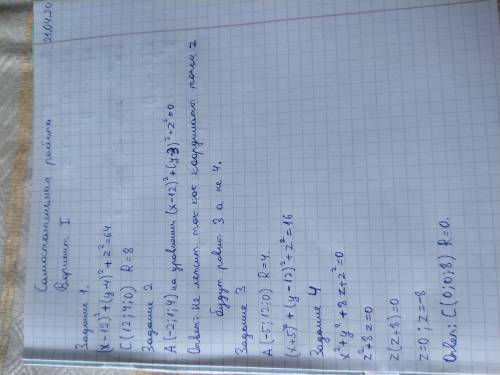 21.04.20
Самостоятельная работа
Вариант I
Задание 1.
(x-12)²+(y-4)²+z²=64
C(12;4;0) R=8
Задание 2
A(-2;1;4) на уравнении (x-12)²+(y-3)²+z²=0
Ответ: Не лежит так как координаты точки z
будут равны 3 а не 4.
Задание 3
A(-5;12;0) R=4.
(x+5)²+(y-12)²+z²=16
Задание 4
x²+y²+8z+z²=0
z²+8z=0
z(z+8)=0
z=0; z=-8
Ответ: C(0;0;8) R=0.